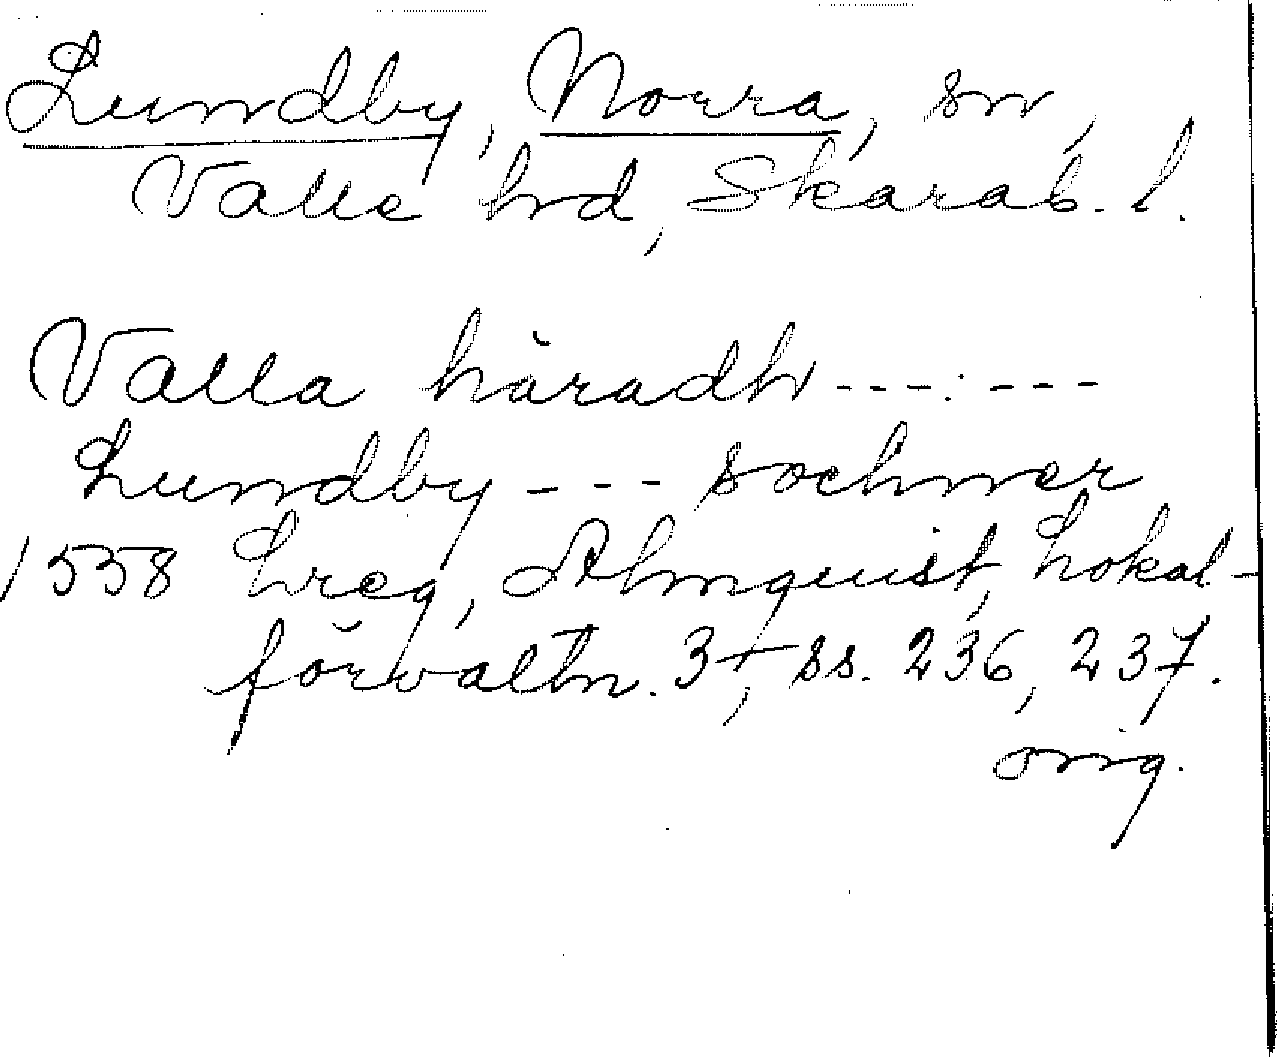 Lundby, Norra, sn,
Valle hrd, Skarab. l.
Valla häradh---:---
Lundby --- sochner
1538 Lreg, Almquist, Lokal-
förvaltn. 3t, ss. 236, 237.
orig.